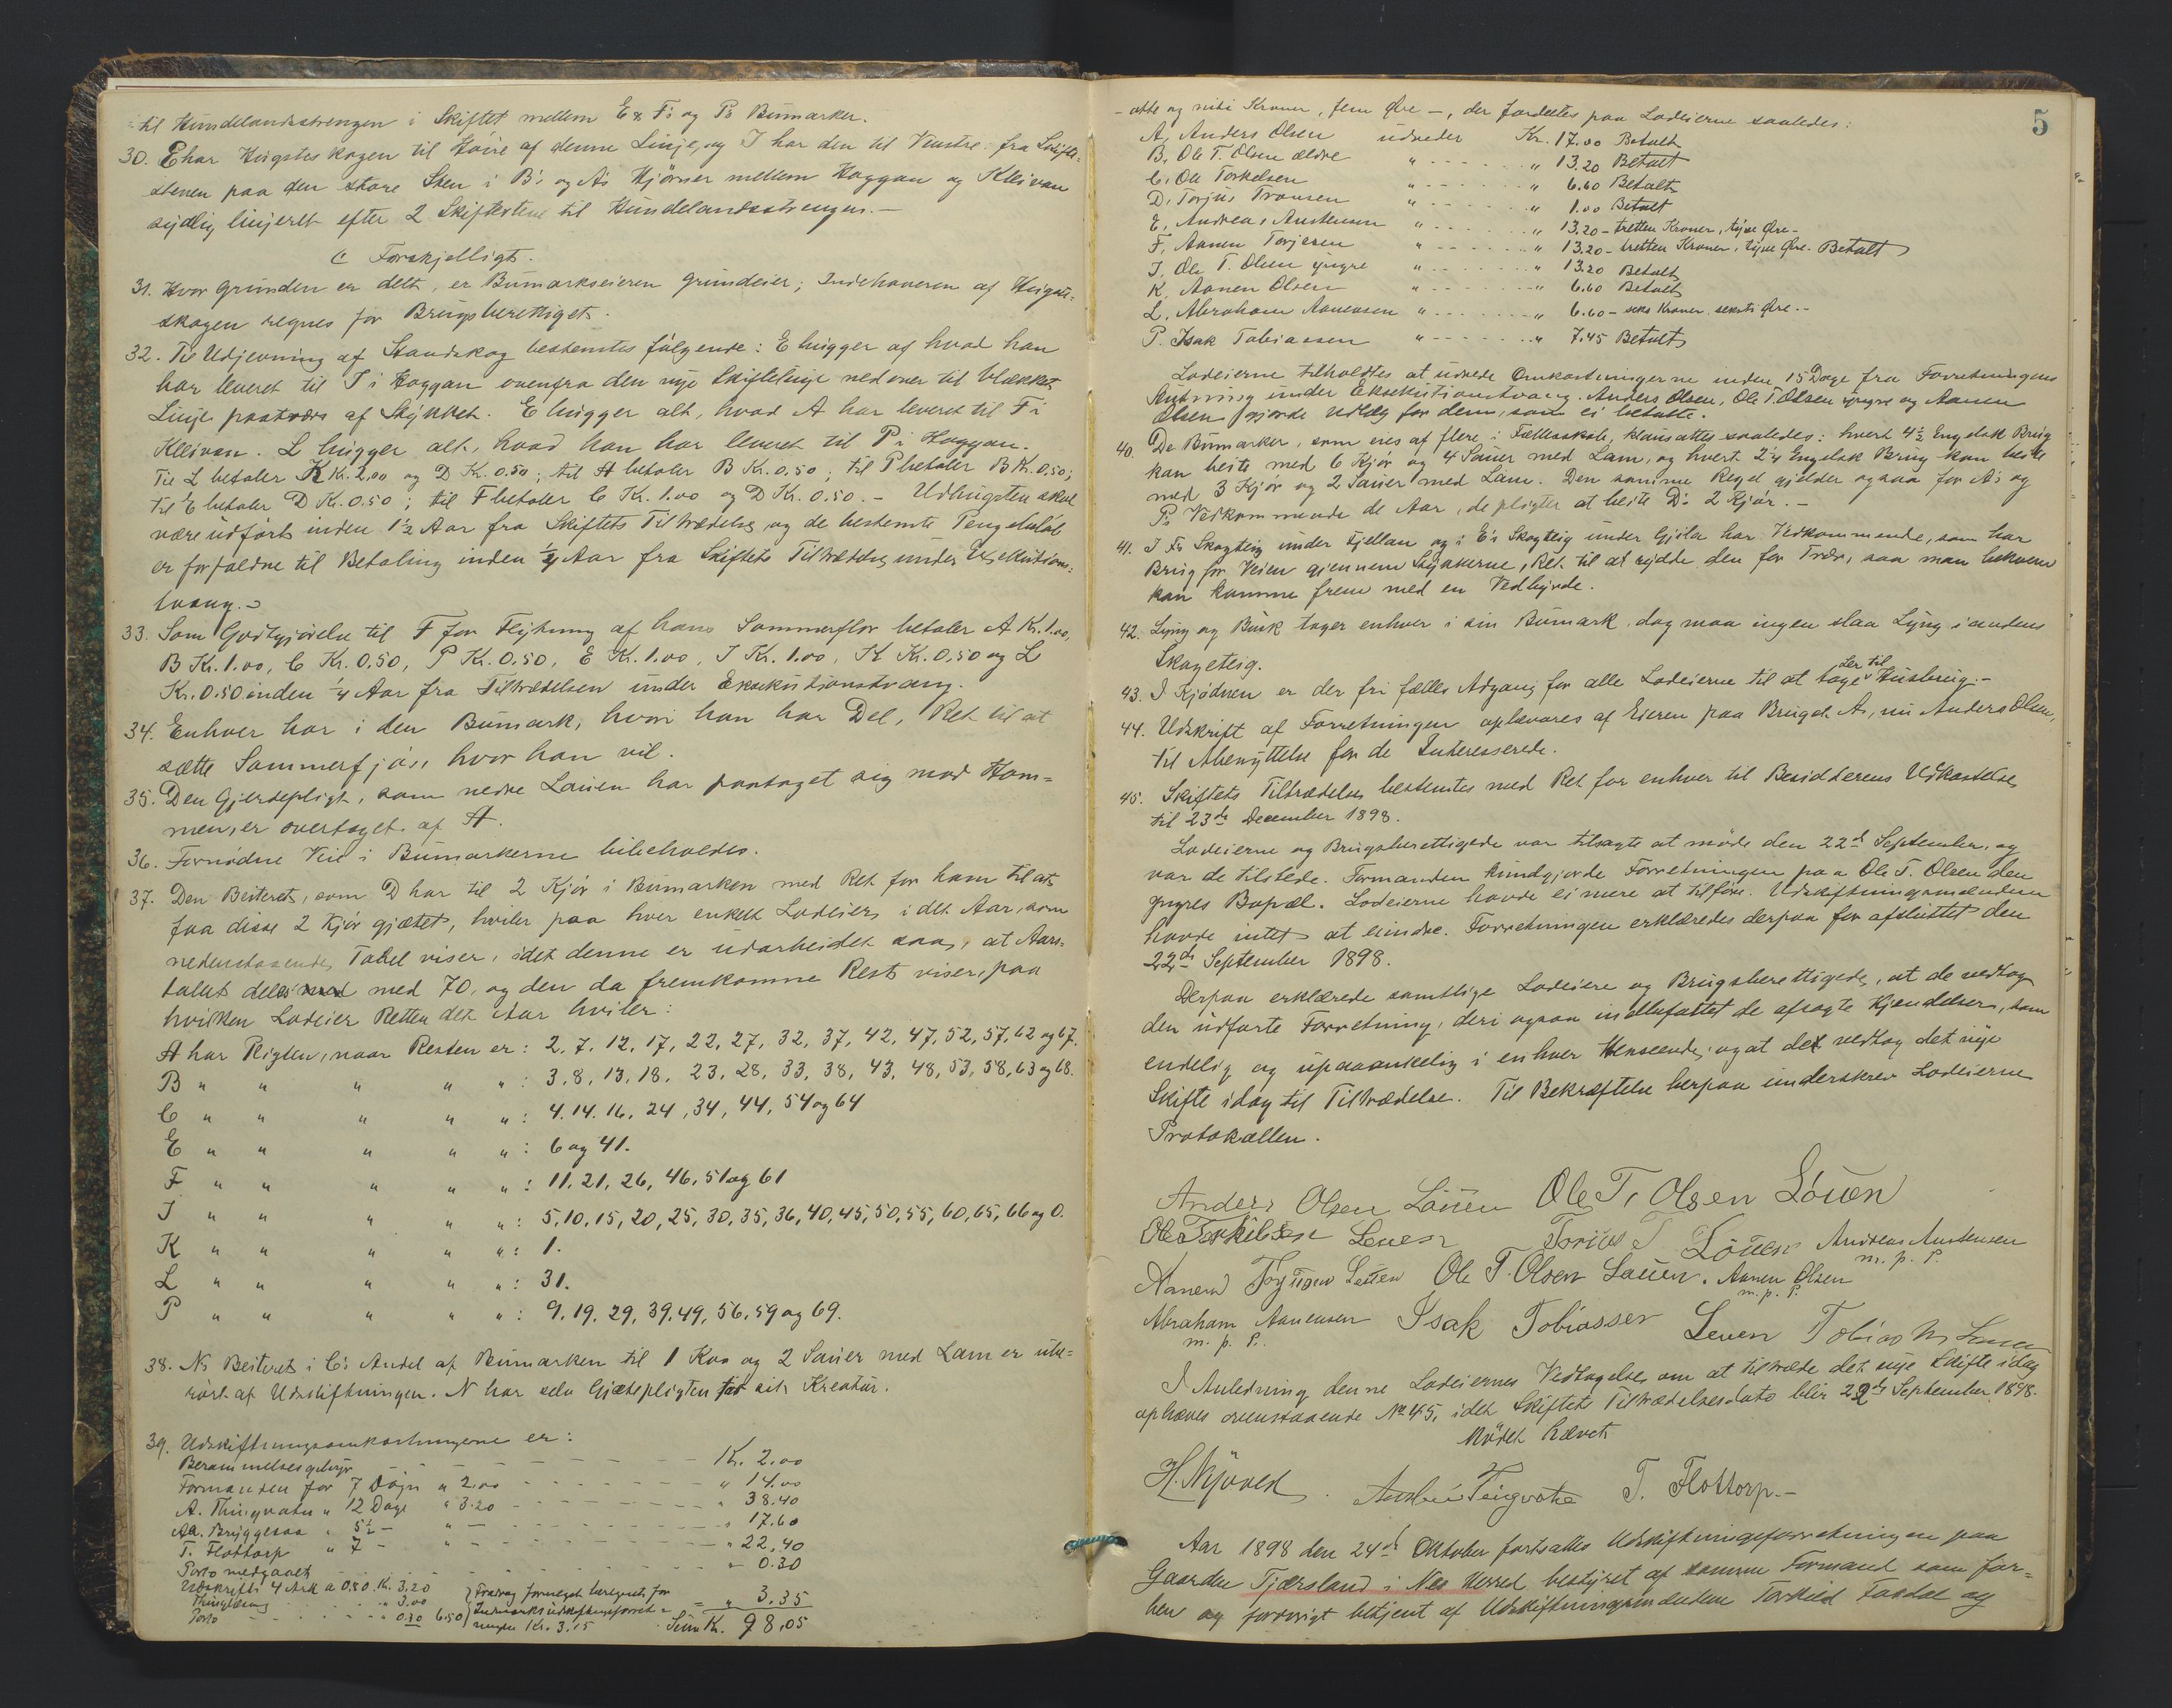 til Hundelandsstrengen i Skiftet mellem E's F's og P's Bumarker.
30. E har Hugsteskogen til Høire af denne Linje, og I har den til Venstre fra Skifte-
stenen paa den store Sten i B's og A's Hjørner mellem Hoggan og Kleivan
sydlig linjeret efter 2 Skiftestene til Hundelandsstrengen. —
C Forskjelligt.
31. Hvor Grunden er delt, er Bumarkseieren Grundeier; Indehaveren af Hugst-
skogen regnes for Brugsberettiget.
32. Til Udjevning af Standskog bestemtes følgende: E hugger af hvad han
har leveret til I i Hoggan ovenfra den nye Skiftelinje nedover til blekket
Linje paatværs af Stykket. E hugger alt, hvad A har leveret til F i
Kleivan. L hugger alt, hvad han har leveret til P i Hoggan.
Til L betaler K Kr. 2,00 og D Kr. 0,50; til A betaler B Kr. 0,50; til P betaler B Kr. 0,50;
til E betaler D Kr. 0.50; til F betaler C Kr. 1.00 og D Kr. 0.50. – Udhugsten skal
være udført inden 1½ Aar fra Skiftets Tiltrædelse, og de bestemte Pengebeløb
er forfaldne til Betaling inden ¼ Aar fra Skiftets Tiltrædelse under Exekutions-
tvang. –
33. Som Godtgjørelse til F for Flytning af hans Sommerflor betaler A Kr. 1.00,
B Kr. 1.00, C Kr. 0,50, P Kr. 0.50, E Kr. 1.00, I Kr. 1.00, K Kr. 0,50 og L
Kr. 0.50 inden ¼ Aar fra Tiltrædelsen under Eksekutionstvang.
34. Enhver har i den Bumark, hvori han har Del, Ret til at
sætte Sommerfjøs, hvor han vil.
35. Den Gjerdepligt, som nedre Lauen har paataget sig mod Hom-
men, er overtaget af A.
36. Fornødne Veie i Bumarkerne bibeholdes.
37. Den Beiteret, som D har til 2 Kjør i Bumarken med Ret for ham til at
faa disse 2 Kjør gjætet, hviler paa hver enkelt Lodeier, i det Aar, som
nedenstaaende Tabel viser, idet denne er udarbeidet saa, at Aars-
tallet deles med 70, og den da fremkomne Rest viser, paa
hvilken Lodeier Retten det Aar hviler:
A har Pligten, naar Resten er: 2, 7, 12, 17, 22, 27, 32, 37, 42, 47, 52, 57, 62 og 67.
B " " " " ": 3, 8, 13, 18, 23, 28, 33, 38, 43, 48, 53, 58, 63 og 68.
C " " " " ": 4. 14. 16, 24, 34, 44, 54 og 64
E " " " " ": 6 og 41.
F " " " " ": 11. 21, 26, 46, 51 og 61
I " " " " ": 5, 10, 15, 20, 25, 30, 35, 36, 40, 45, 50, 55, 60, 65, 66 og 0.
K " " " " ": 1.
L " " " " ": 31.
P " " " " ": 9, 19. 29, 39, 49, 56, 59 og 69.
38. N's Beiteret i C's Andel af Bumarken til 1 Ko og 2 Sauer med Lam er ube-
rørt af Udskiftningen. N har selv Gjætepligten for sit Kreatur.
39. Udskiftningsomkostningerne er:
Berammelsesgebyr – – – Kr. 2.00
Formanden for 7 Døgn a 2,00 – – – " 14.00
A. Thingvatn " 12 Dage " 3.20 – – – " 38.40
Aa. Bryggesaa " 5½ – " – – – " 17.60
T. Flottorp " 7 – " – – – " 22,40
Porto medgaaet – – – " 0.30
Udskrift 4 Ark a 0,80 Kr. 3,20
Thinglæsning " 3.00
Porto " 0.30 6.50 } Fradrag Kr. 3.15 = " 3.35
Sum Kr. 98,05
5
– otte og niti Kroner, fem Øre –, der fordeltes paa Lodeierne saaledes:
A, Anders Olsen udreder Kr. 17.00 Betalt
B, Ole T. Olsen ældre " – – – " 13.20 Betalt
C, Ole Torkelsen " – – – " 6.60 Betalt
D, Torjus Tronsen " – – – " 1.00 Betalt
E, Andreas Austensen " – – – " 13,20 – tretten Kroner, tyve Øre –
F, Aanen Torjesen " – – – " 13.20 – tretten Kroner, tyve Øre. Betalt
I, Ole T. Olsen yngre " – – – " 13.20 Betalt
K, Aanen Olsen " – – – " 6.60 Betalt
L, Abraham Aanensen " – – – " 6.60 – seks Kroner seksti Øre. –
P. Isak Tobiassen " – – – " 7.45 Betalt
Lodeierne tilholdtes at udrede Omkostningerne inden 15 Dage fra Forretningens
Slutning under Eksekutionstvang. Anders Olsen, Ole T. Olsen yngre og Aanen
Olsen gjorde Udlæg for dem, som ei betalte.
40. De Bumarker, som eies af flere i Fællesskab, klausattes saaledes: hvert 4½ Engelsk Brug
kan beite med 6 Kjør og 4 Sauer med Lam, og hvert 2¼ Engelsk Brug kan beite
med 3 Kjør og 2 Sauer med Lam. Den samme Regel gjelder ogsaa for A's og
P's Vedkommende de Aar, de pligter at beite D's 2 Kjør. –
41. I F's Skogteig under Fjellan og i E's Skogteig under Gjila har Vedkommende, som har
Brug for Veien gjennem Stykkerne, Ret til at rydde den for Trær, saa man bekvem
kan komme frem med en Vedbyrde.
42. Lyng og Busk tager enhver i sin Bumark, dog maa ingen slaa Lyng i andens
Skogeteig.
43. I Kjødnen er der fri fælles Adgang for alle Lodeierne til at tage Ler til Husbrug. –
44. Udskrift af Forretningen opbevares af Eieren paa Bruget A, nu Anders Olsen,
til Abenyttelse for de Interesserede.
45. Skiftets Tiltrædelse bestemtes med Ret for enhver til Besidderens Udkastelse
til 23de December 1898.
Lodeierne og Brugsberettigede var tilsagte at møde den 22de September, og
var de tilstede. Formanden kundgjorde Forretningen paa Ole T. Olsen den
yngres Bopæl. Lodeierne havde ei mere at tilføre. Udskiftningsmændene
havde intet at erindre. Forretningen erklæredes derpaa for afsluttet den
22de September 1898.
Derpaa erklærede samtlige Lodeiere og Brugsberettigede, at de vedtog
den udførte Forretning, deri ogsaa indbefattet de afsagte Kjendelser, som
endelig og upaaankelig i enhver Henseende, og at de vedtog det nye
Skifte idag til Tiltrædelse. Til Bekræftelse herpaa underskrev Lodeierne
Protokollen.
Anders Olsen Løuen Ole T. Olsen Løuen
Ole Torkilsen Leuen Torius T Löuen Andreas Austensen
m. p. P.
Aanen Leuen Ole T. Olsen Lauen. Aanen Olsen
m. p. P.
Abraham Aanensen Isak Tobiassen Leuen Tobias
m. p. P.
I Anledning denne Lodeiernes Vedtagelse om at tiltræde det nye Skifte idag
ophæves ovenstaaende No 45, idet Skiftets Tiltrædelsesdato blir 22de September 1898.
Mødet hævet
H. Njøved. T. Flottorp. –
Aar 1898 den 24de Oktober fortsattes Udskiftningsforretningen paa
Gaarden Tjærsland i Nes Herred bestyret af samme Formand som før-
hen og forøvrigt betjent af Udskiftningsmændene Torkild og